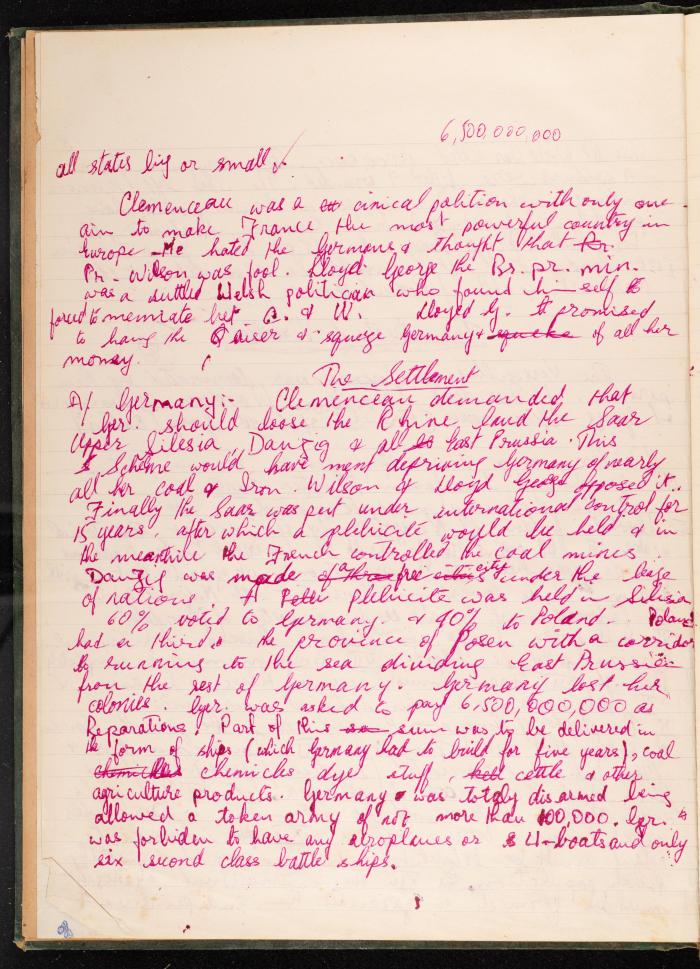 6,500,000,000
all states big or small.
Clemenceau was a cinical polition with only one
aim to make France the most powerful country in
Europe. He hated the Germans & thought that
Pr. Wilson was fool. Lloyd George the Br. pr. min.
was a Welsh politician who found himself to
forced to between C. & W. Lloyd G. promised
to hang the Kaiser & squeze Germany of all her
money.
The Settlement
A/ Germany:- Clemenceau demanded that
Ger. should loose the Rhine land the Saar
Upper Silesia Danzig & all East Prussia. This
Scheme would have ment depriving Germany of nearly
all her coal & Iron. Wilson & Lloyd George opposed it.
Finally the Saar was put under international control for
15 years, after which a plebicite would be held & in
the meantime the French controlled the coal mines.
Danzig was made a free city under the leage
of nations. A plebicite was held in Silisia
60% voted to Germany & 40% to Poland. Poland
had a third of the province of Posen with a corridor
running to the sea dividing East Prussia
from the rest of Germany. Germany lost her
colonies. Ger. was asked to pay 6,500,000,000 as
Reparations. Part of this sum was to be delivered in
the form of ships (which Germany had to build for five years), coal
chemicles dye stuff, cattle & other
agriculture products. Germany was totaly disarmed being
allowed a token army of not more than 100,000. Ger.
was forbiden to have any airoplanes or U-boats and only
six second class battle ships.